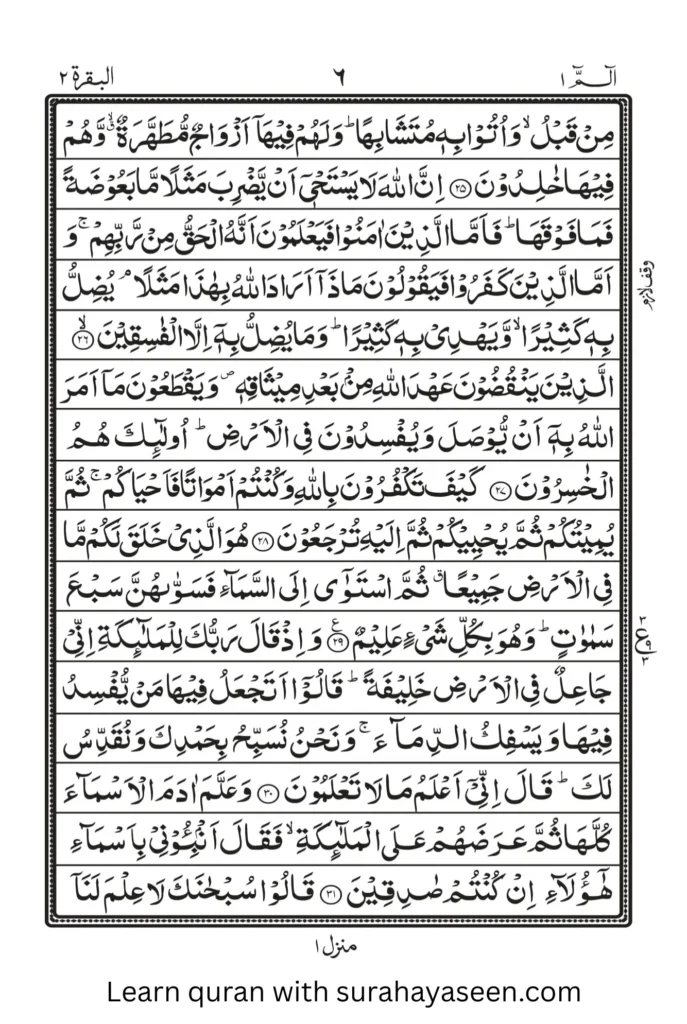 الٓـمّٓ ١ ٦ البقرة ٢
مِنْ قَبْلُ ۙ وَاُتُوْا بِهٖ مُتَشَابِهًا ؕ وَلَهُمْ فِيْهَاۤ اَزْوَاجٌ مُّطَهَّرَةٌ ۙۗ وَّهُمْ
فِيْهَا خٰلِدُوْنَ ﴿۲۵﴾ اِنَّ اللّٰهَ لَا يَسْتَحْيٖۤ اَنْ يَّضْرِبَ مَثَلًا مَّا بَعُوْضَةً
فَمَا فَوْقَهَا ؕ فَاَمَّا الَّذِيْنَ اٰمَنُوْا فَيَعْلَمُوْنَ اَنَّهُ الْحَقُّ مِنْ رَّبِّهِمْ ۚ وَ
اَمَّا الَّذِيْنَ كَفَرُوْا فَيَقُوْلُوْنَ مَاذَاۤ اَرَادَ اللّٰهُ بِهٰذَا مَثَلًا ۘ يُضِلُّ
وقف لازم
بِهٖ كَثِيْرًا ۙ وَّيَهْدِىْ بِهٖ كَثِيْرًا ؕ وَمَا يُضِلُّ بِهٖۤ اِلَّا الْفٰسِقِيْنَ ۙ﴿۲۶﴾
الَّذِيْنَ يَنْقُضُوْنَ عَهْدَ اللّٰهِ مِنْۢ بَعْدِ مِيْثَاقِهٖ ۪ وَيَقْطَعُوْنَ مَاۤ اَمَرَ
اللّٰهُ بِهٖۤ اَنْ يُّوْصَلَ وَيُفْسِدُوْنَ فِى الْاَرْضِ ؕ اُولٰٓئِكَ هُمُ
الْخٰسِرُوْنَ ﴿۲۷﴾ كَيْفَ تَكْفُرُوْنَ بِاللّٰهِ وَكُنْتُمْ اَمْوَاتًا فَاَحْيَاكُمْ ۚ ثُمَّ
يُمِيْتُكُمْ ثُمَّ يُحْيِيْكُمْ ثُمَّ اِلَيْهِ تُرْجَعُوْنَ ﴿۲۸﴾ هُوَ الَّذِىْ خَلَقَ لَكُمْ مَّا
فِى الْاَرْضِ جَمِيْعًا ۗ ثُمَّ اسْتَوٰٓى اِلَى السَّمَآءِ فَسَوّٰىهُنَّ سَبْعَ
سَمٰوٰتٍ ؕ وَهُوَ بِكُلِّ شَىْءٍ عَلِيْمٌ ﴿۲۹﴾ وَاِذْ قَالَ رَبُّكَ لِلْمَلٰٓئِكَةِ اِنِّىْ
جَاعِلٌ فِى الْاَرْضِ خَلِيْفَةً ؕ قَالُوْۤا اَتَجْعَلُ فِيْهَا مَنْ يُّفْسِدُ
فِيْهَا وَيَسْفِكُ الدِّمَآءَ ۚ وَنَحْنُ نُسَبِّحُ بِحَمْدِكَ وَنُقَدِّسُ
لَكَ ؕ قَالَ اِنِّىْۤ اَعْلَمُ مَا لَا تَعْلَمُوْنَ ﴿۳۰﴾ وَعَلَّمَ اٰدَمَ الْاَسْمَآءَ
كُلَّهَا ثُمَّ عَرَضَهُمْ عَلَى الْمَلٰٓئِكَةِ ۙ فَقَالَ اَنْۢبِـُٔوْنِىْ بِاَسْمَآءِ
هٰۤؤُلَآءِ اِنْ كُنْتُمْ صٰدِقِيْنَ ﴿۳۱﴾ قَالُوْا سُبْحٰنَكَ لَا عِلْمَ لَنَاۤ
منزل ١
Learn quran with surahayaseen.com